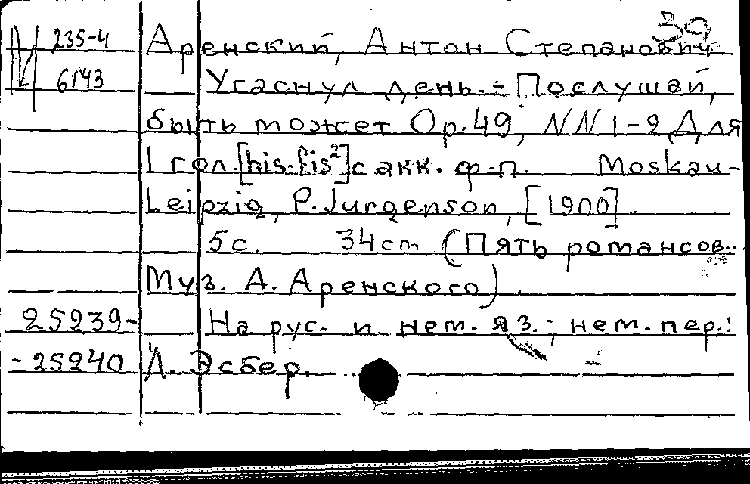 39
М 235-4 Аренский, Антон Степанович
6143 Угаснул день. - Послушай,
быть может Ор. 49, NN 1-2 Для
1 гол. [his-fis²] с акк. ф-п. Moskau-
Leipzig, P. Jurgenson, [1900]
5с. 34cm (Пять романсов..
Муз. А. Аренского).
25239- На рус. и нем. яз.; нем. пер.:
-25240 Л. Эсбер.